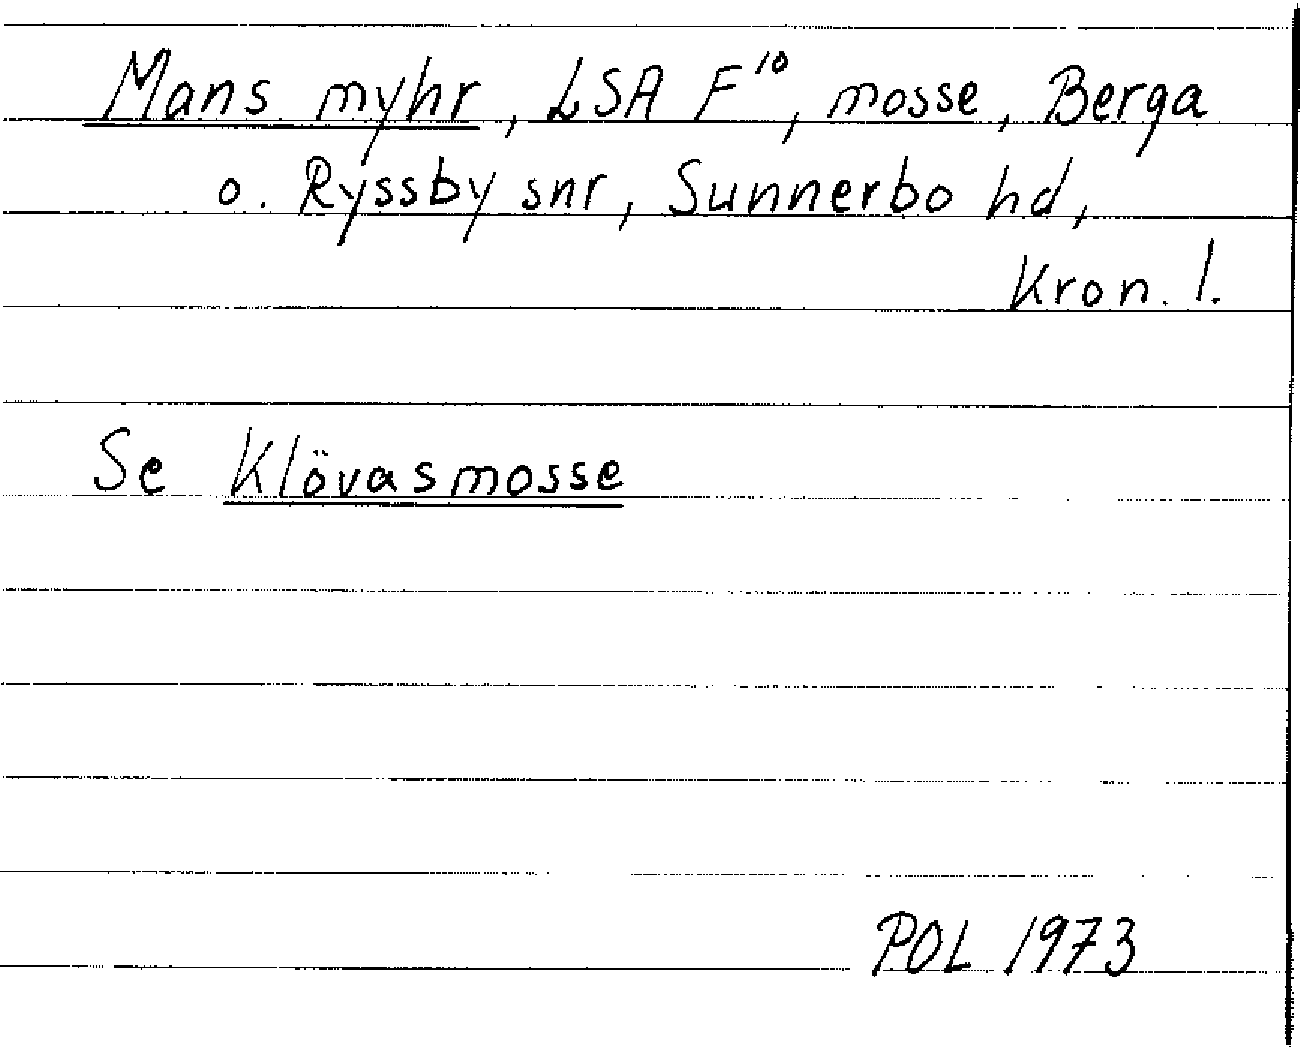 Mans myhr, LSA F¹⁰, mosse, Berga
o. Ryssby snr, Sunnerbo hd,
Kron. l.
Se Klövasmosse
POL 1973